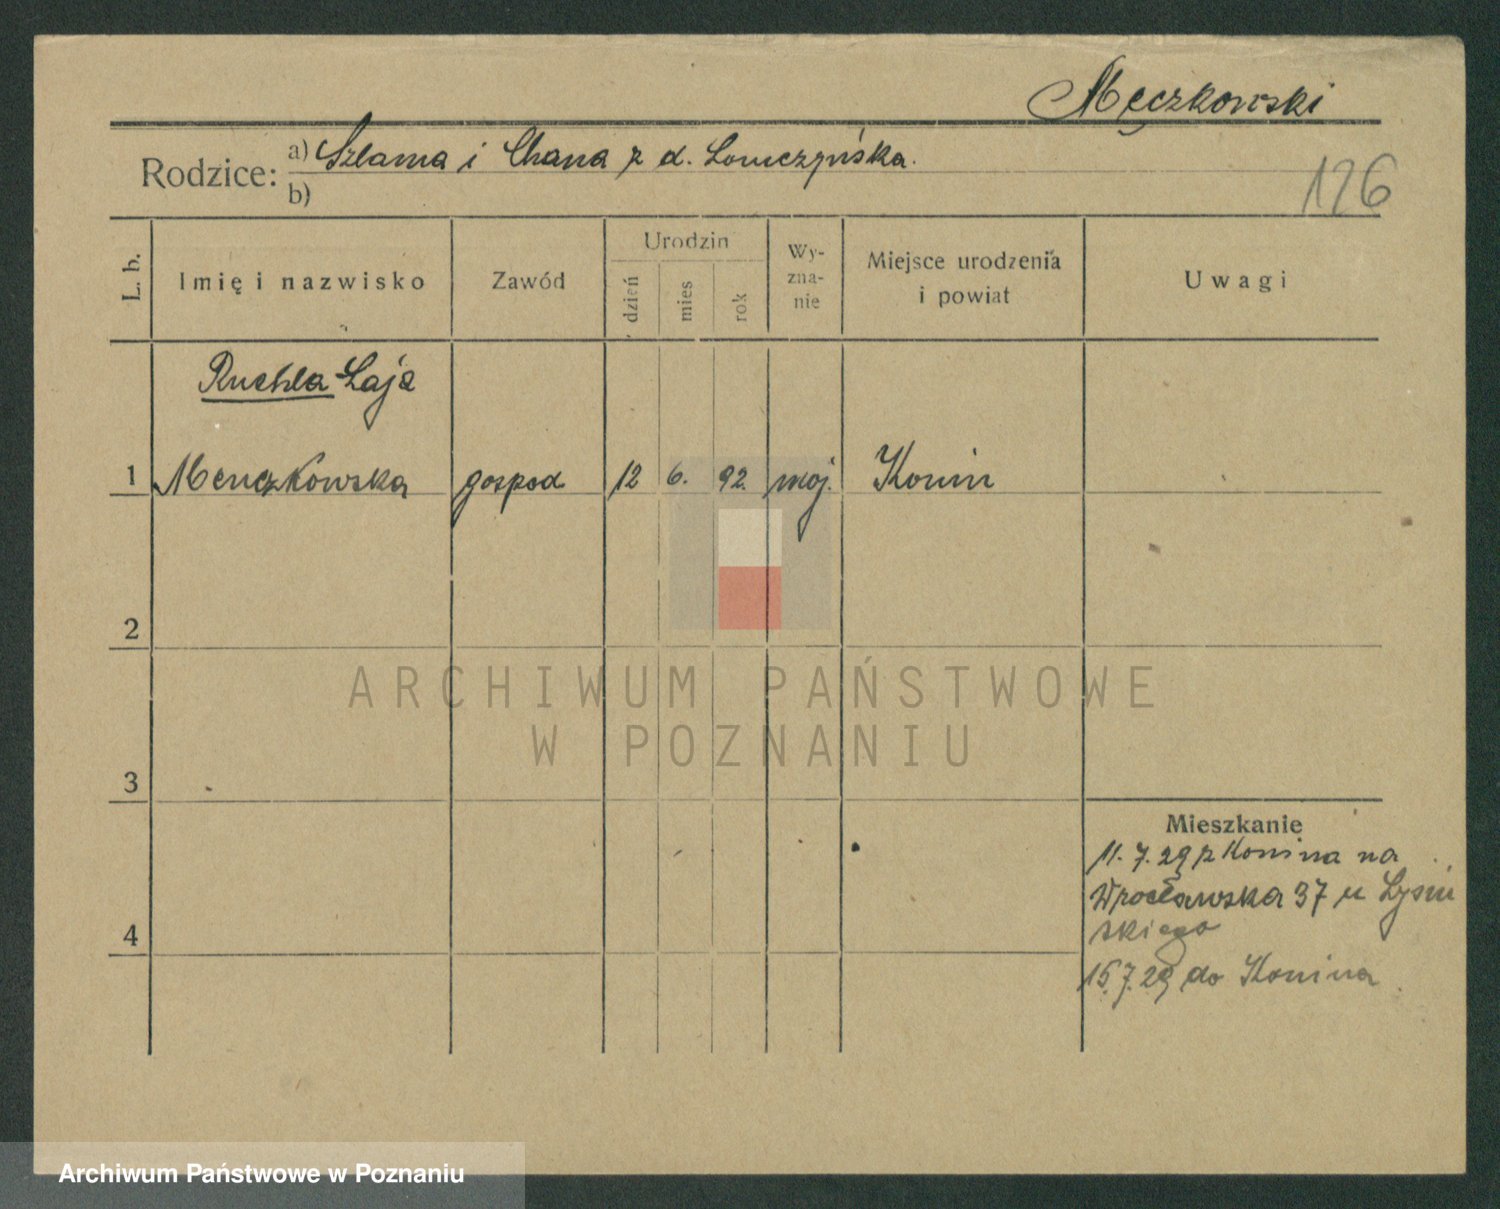 Męczkowski
Rodzice: a) Szlama i Chana z d. Lomczyńska.
b)
126
L. b.
Imię i nazwisko
Zawód
Urodzin
dzień
mies
rok
Wy-
zna-
nie
Miejsce urodzenia
i powiat
Uwagi
Ruchla Łaja
1 Menczkowska gospod 12 6. 92. moj. Konin
2
ARCHIWUM PAŃSTWOWE
W POZNANIU
3
Mieszkanie
11. 7. 29 z Konina na
Wrocławska 37 u
skiego
4
15.7.29 do Konina
Archiwum Państwowe w Poznaniu